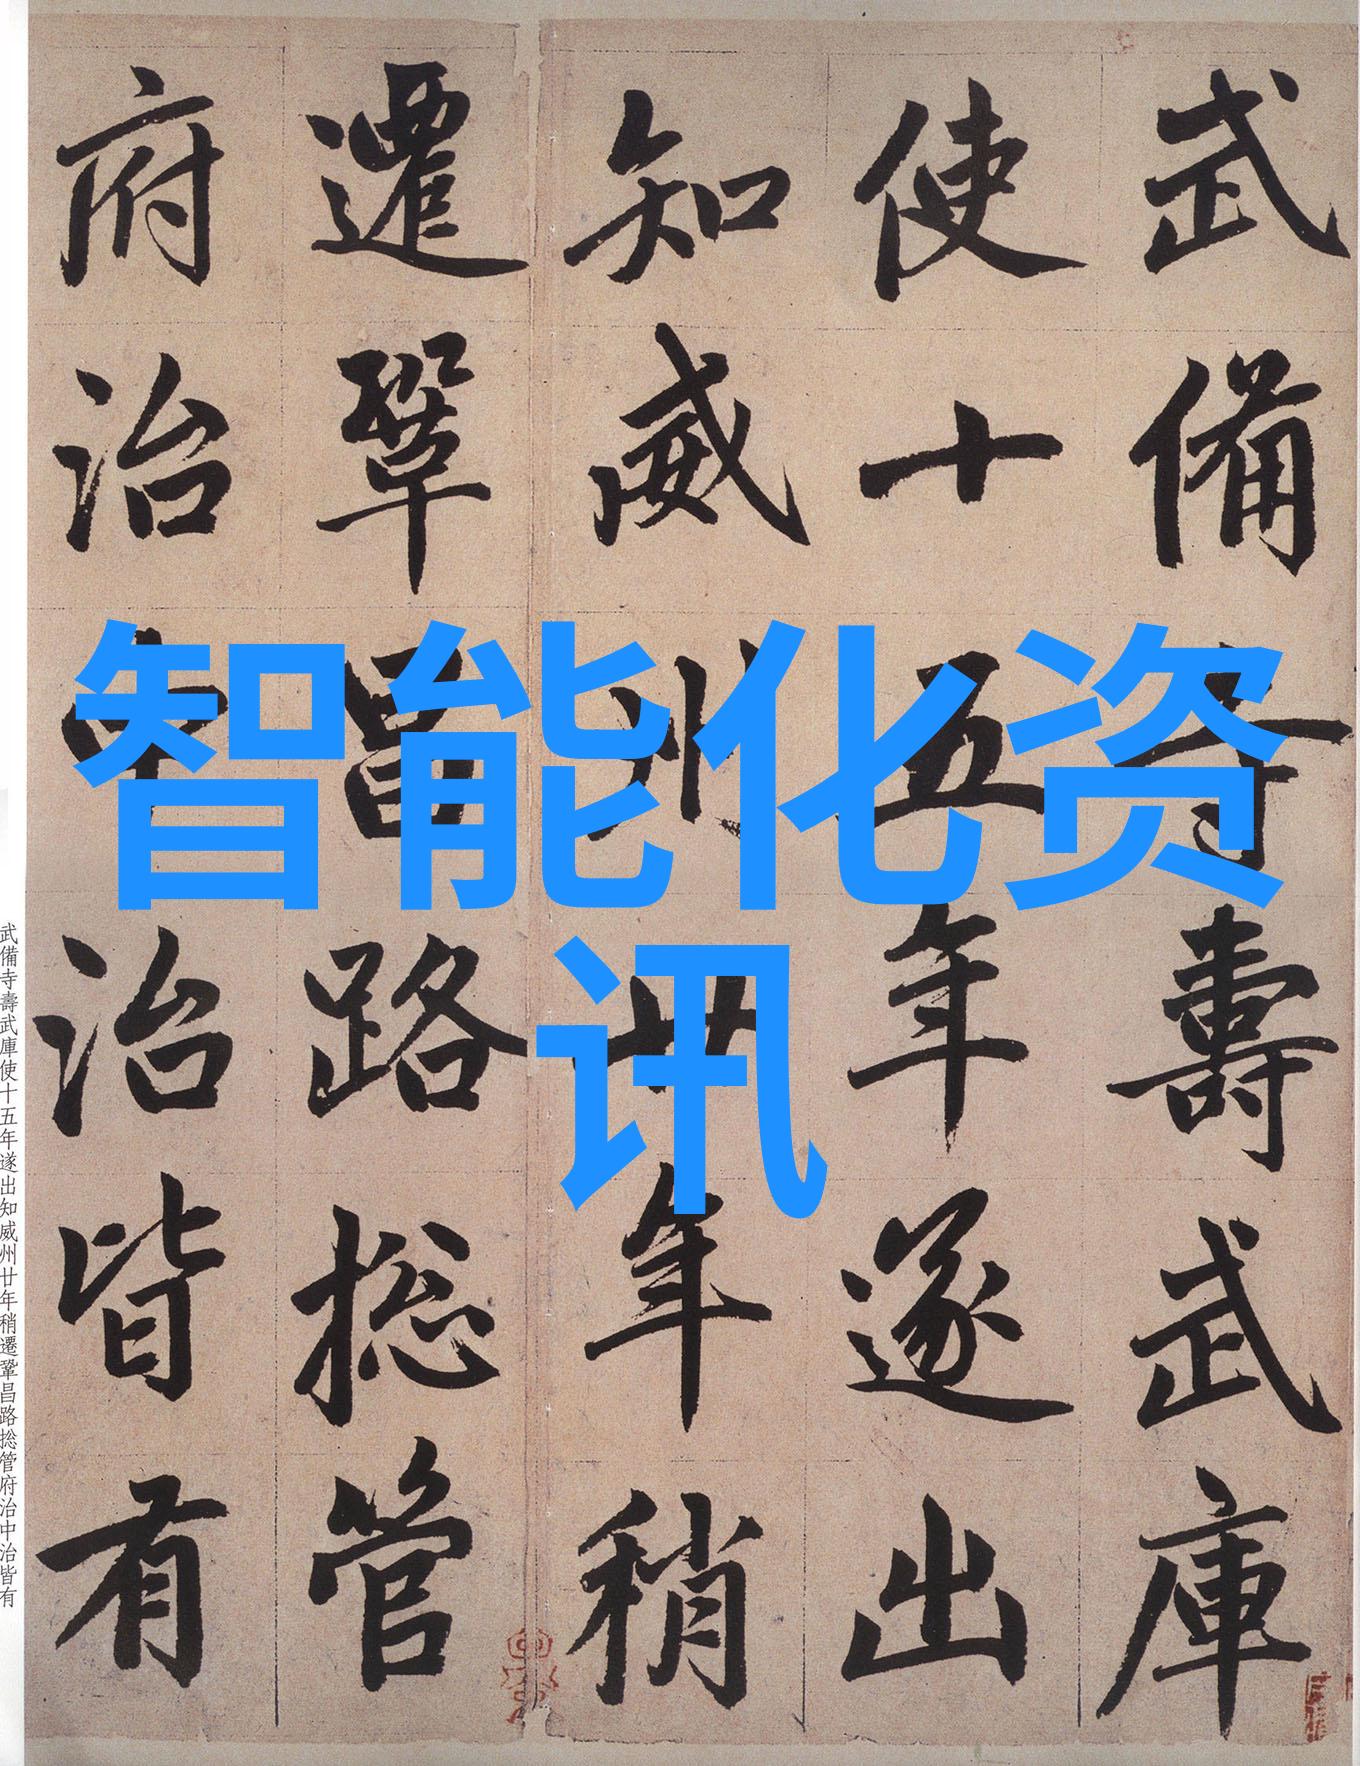 武備寺壽武庫
使十五年遂出
知威州廿年稍
遷鞏昌路揔管
府治中治皆有
智能化资
讯
武備寺壽武庫使十五年遂出知威州廿年稍遷鞏昌路揔管府治中治皆有